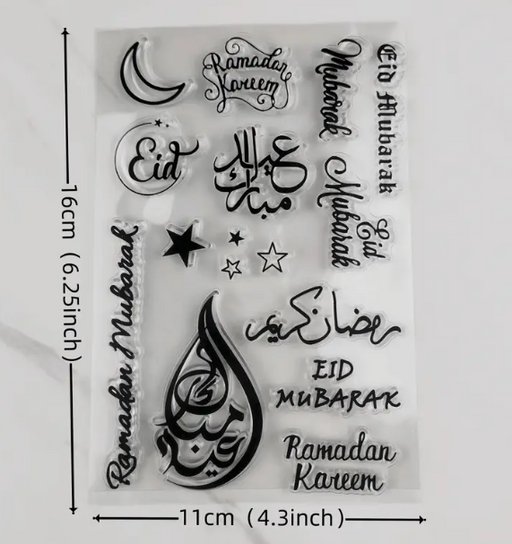 Ramadan
Kareem
Mubarak
Eid Mubarak
Eid
عيد
مبارك
Eid
Mubarak
Ramadan Mubarak
رمضان كريم
EID
MUBARAK
عيد
مبارك
Ramadan
Kareem
16cm (6.25inch)
11cm (4.3inch)